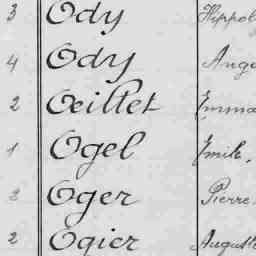 3 Ody Hippol
4 Ody Aug
2 Œillet Emma
1 Ogel Emile,
2 Oger Pierre
2 Ogier Auguste